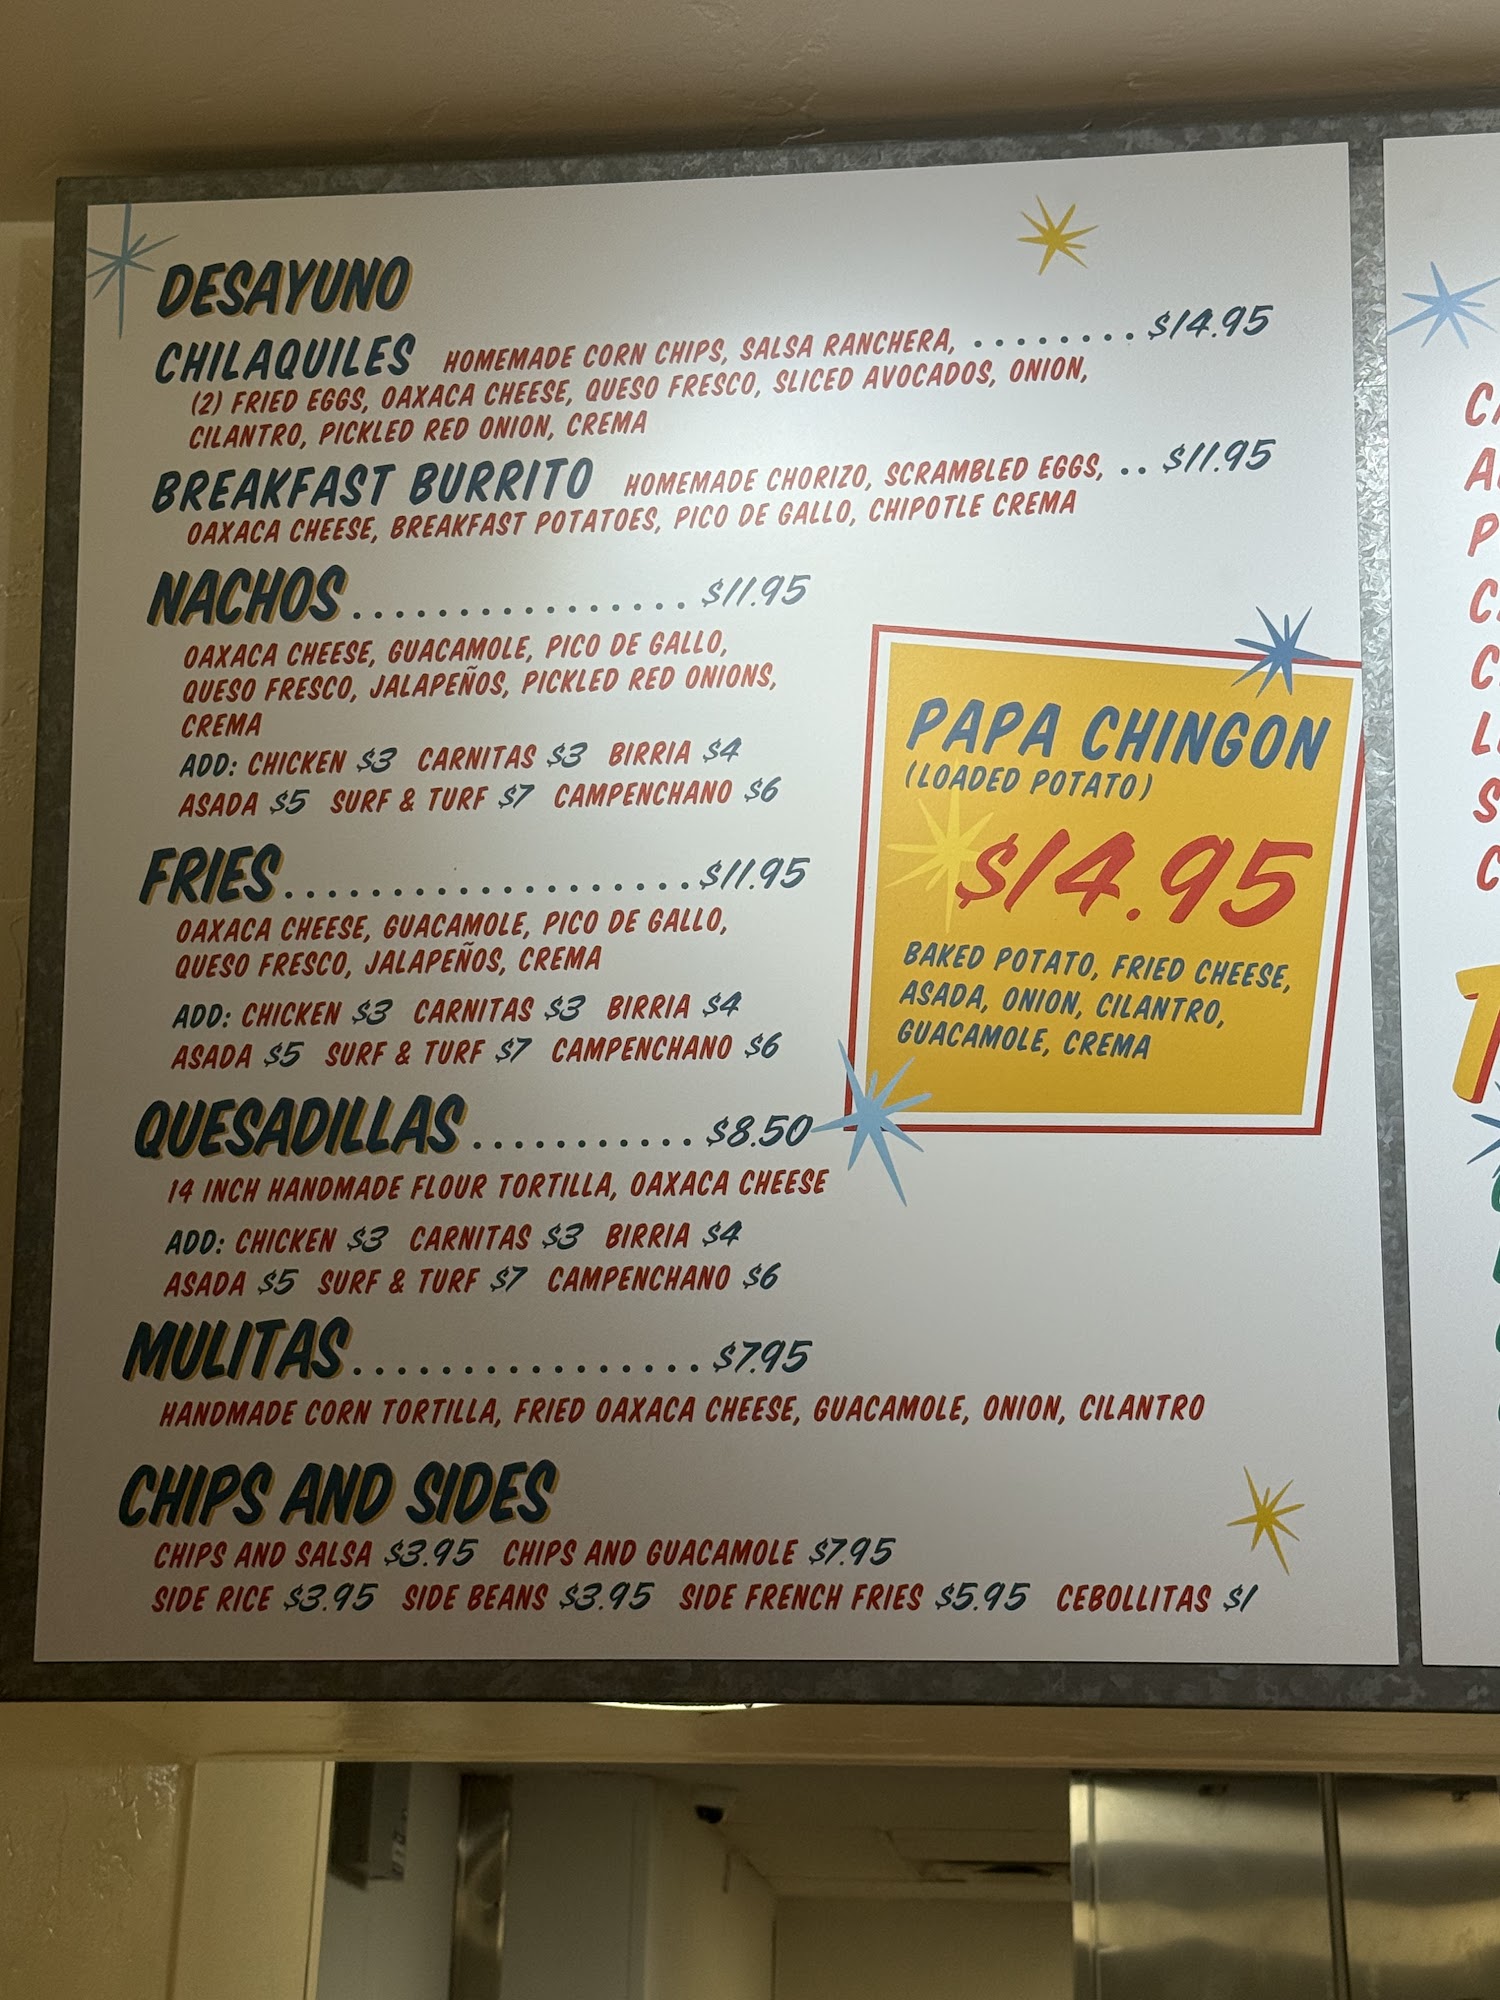 DESAYUNO
CHILAQUILES HOMEMADE CORN CHIPS, SALSA RANCHERA, ......... $14.95
(2) FRIED EGGS, OAXACA CHEESE, QUESO FRESCO, SLICED AVOCADOS, ONION,
CILANTRO, PICKLED RED ONION, CREMA
BREAKFAST BURRITO HOMEMADE CHORIZO, SCRAMBLED EGGS, .. $11.95
OAXACA CHEESE, BREAKFAST POTATOES, PICO DE GALLO, CHIPOTLE CREMA
NACHOS................ $11.95
OAXACA CHEESE, GUACAMOLE, PICO DE GALLO,
QUESO FRESCO, JALAPEÑOS, PICKLED RED ONIONS,
CREMA
ADD: CHICKEN $3 CARNITAS $3 BIRRIA $4
ASADA $5 SURF & TURF $7 CAMPENCHANO $6
FRIES................... $11.95
OAXACA CHEESE, GUACAMOLE, PICO DE GALLO,
QUESO FRESCO, JALAPEÑOS, CREMA
ADD: CHICKEN $3 CARNITAS $3 BIRRIA $4
ASADA $5 SURF & TURF $7 CAMPENCHANO $6
QUESADILLAS........... $8.50
14 INCH HANDMADE FLOUR TORTILLA, OAXACA CHEESE
ADD: CHICKEN $3 CARNITAS $3 BIRRIA $4
ASADA $5 SURF & TURF $7 CAMPENCHANO $6
MULITAS................. $7.95
HANDMADE CORN TORTILLA, FRIED OAXACA CHEESE, GUACAMOLE, ONION, CILANTRO
CHIPS AND SIDES
CHIPS AND SALSA $3.95 CHIPS AND GUACAMOLE $7.95
SIDE RICE $3.95 SIDE BEANS $3.95 SIDE FRENCH FRIES $5.95 CEBOLLITAS $1
PAPA CHINGON
(LOADED POTATO)
$14.95
BAKED POTATO, FRIED CHEESE,
ASADA, ONION, CILANTRO,
GUACAMOLE, CREMA